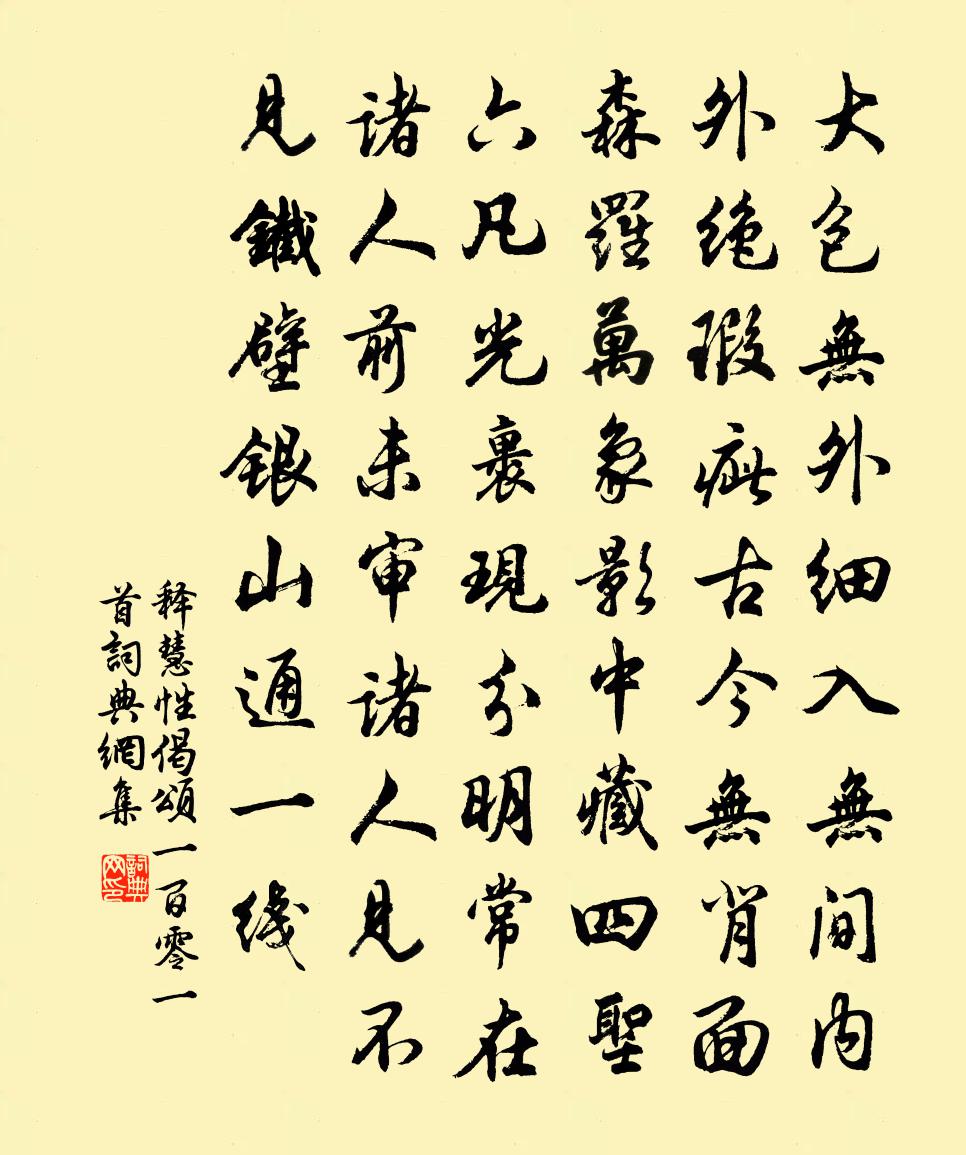 大包無外細入無間内
外绝瑕疵古今無背面
森羅萬象影中藏四聖
六凡光裏現分明常在
诸人前未审诸人見不
見鐵壁銀山通一线
释慧性偈頌一百零一
首詞典網集
詞典网印